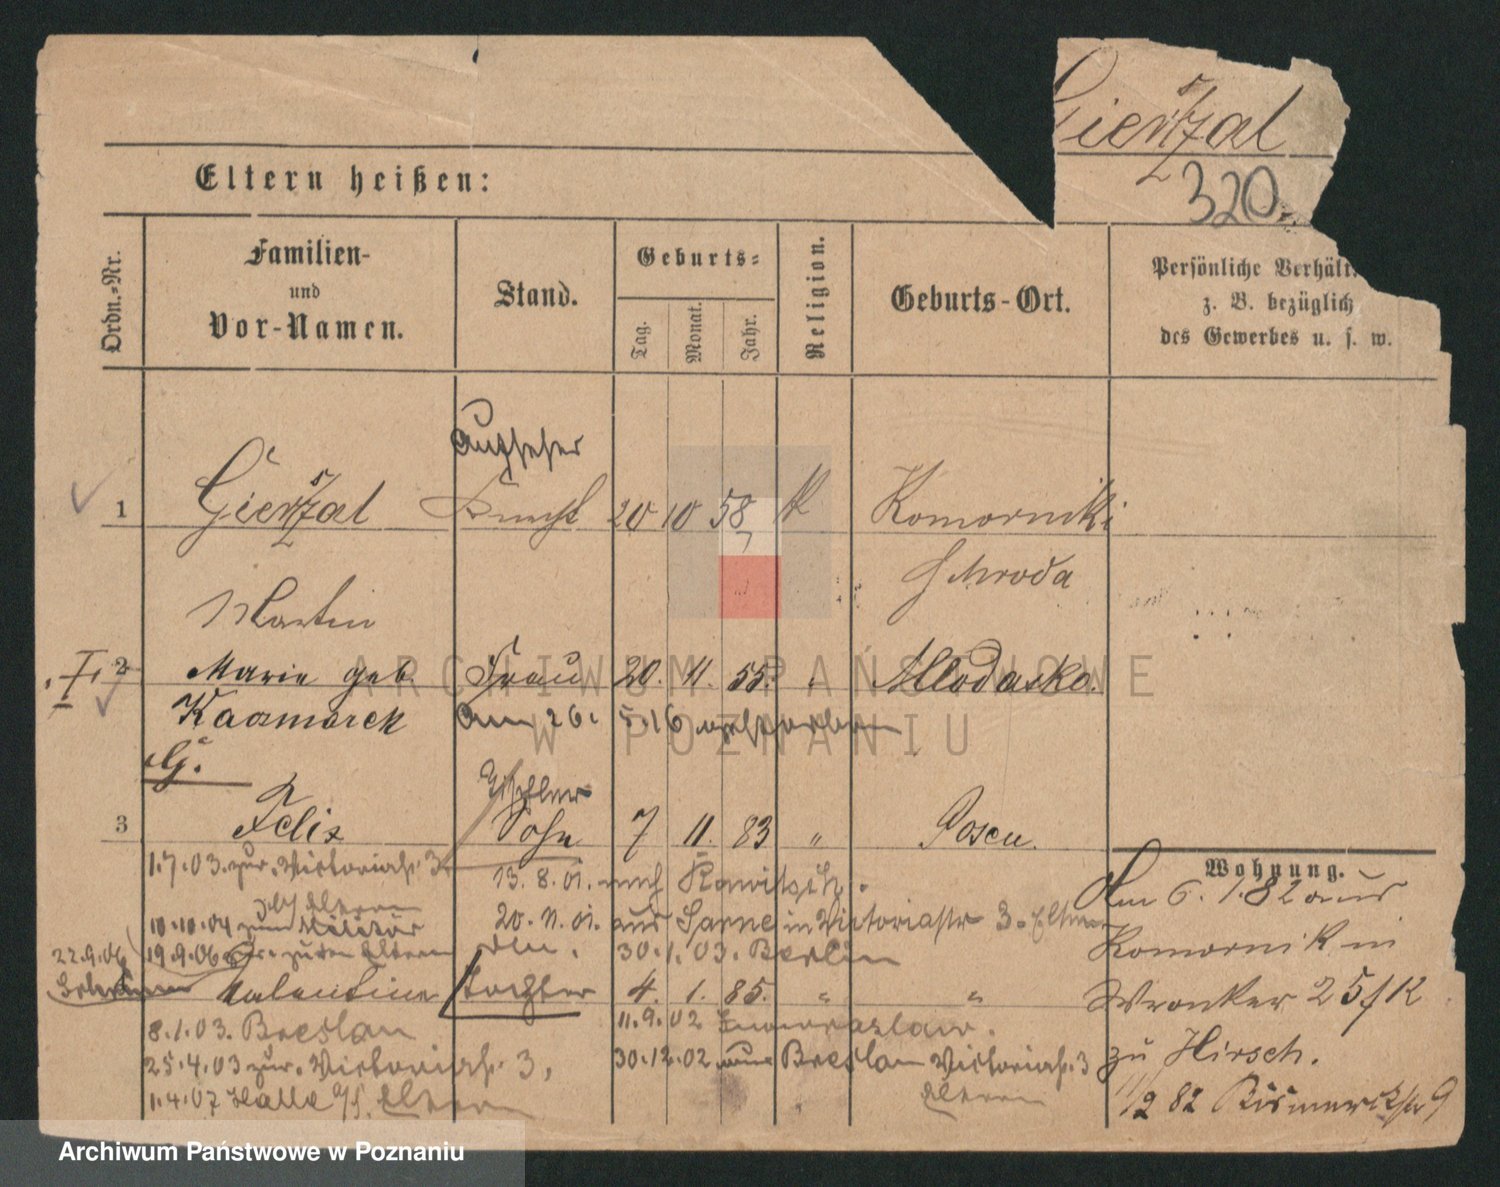 Gierszal
320
Eltern heißen:
Ordn.-Nr.
Familien- und Vor-Namen.
Stand.
Geburts-
Tag.
Monat.
Jahr.
Religion.
Geburts-Ort.
Persönliche Verhält
z. B. bezüglich
des Gewerbes u. s. w.
Aufseher
1 Gierszal Knecht 20 10 58 k Komorniki
7
Schroda
Martin
I. 2 Marie geb. Frau 20. 11. 55. " Mlodasko.
Kaczmarek am 26. 5. 16 verstorben
G.
Tischler
3 Felix Sohn 7 11. 83 " Posen.
1.7.03. zur. Victoriastr. 3.
Wohnung.
13. 8. 01. nach Rawitsch.
Am 6. 1. 82 aus
Eltern
10.10.04 zum Militär
20. 11. 01. aus Sarne in Victoriastr 3. Eltern
Komorniki in
22.9.06
19.9.06 zu den Eltern
30.1.03. Berlin
Valentine Tochter 4. 1. 85. " "
Wronker 25 f K
8.1.03. Breslau
11.9.02 Inowrazlaw.
25.4.03 zur. Victoriastr. 3,
30.12.02 aus Breslau Victoriastr. 3
Eltern
zu Hirsch.
1.4.07 Halle a/S. Eltern
82 Bismarckstr 9
ARCHIWUM PAŃSTWOWE
W POZNANIU
Archiwum Państwowe w Poznaniu